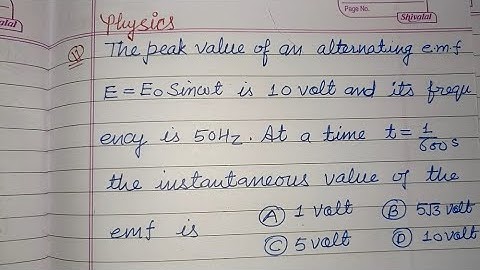 Shivalal
Page No.
Shivalal
Physics
Q The peak value of an alternating e.m.f
E = E₀ Sinωt is 10 volt and its frequ
ency is 50Hz. At a time t = 1/600 s
the instantaneous value of the
emf is (A) 1 Volt (B) 5√3 volt
(C) 5 volt (D) 10 volt